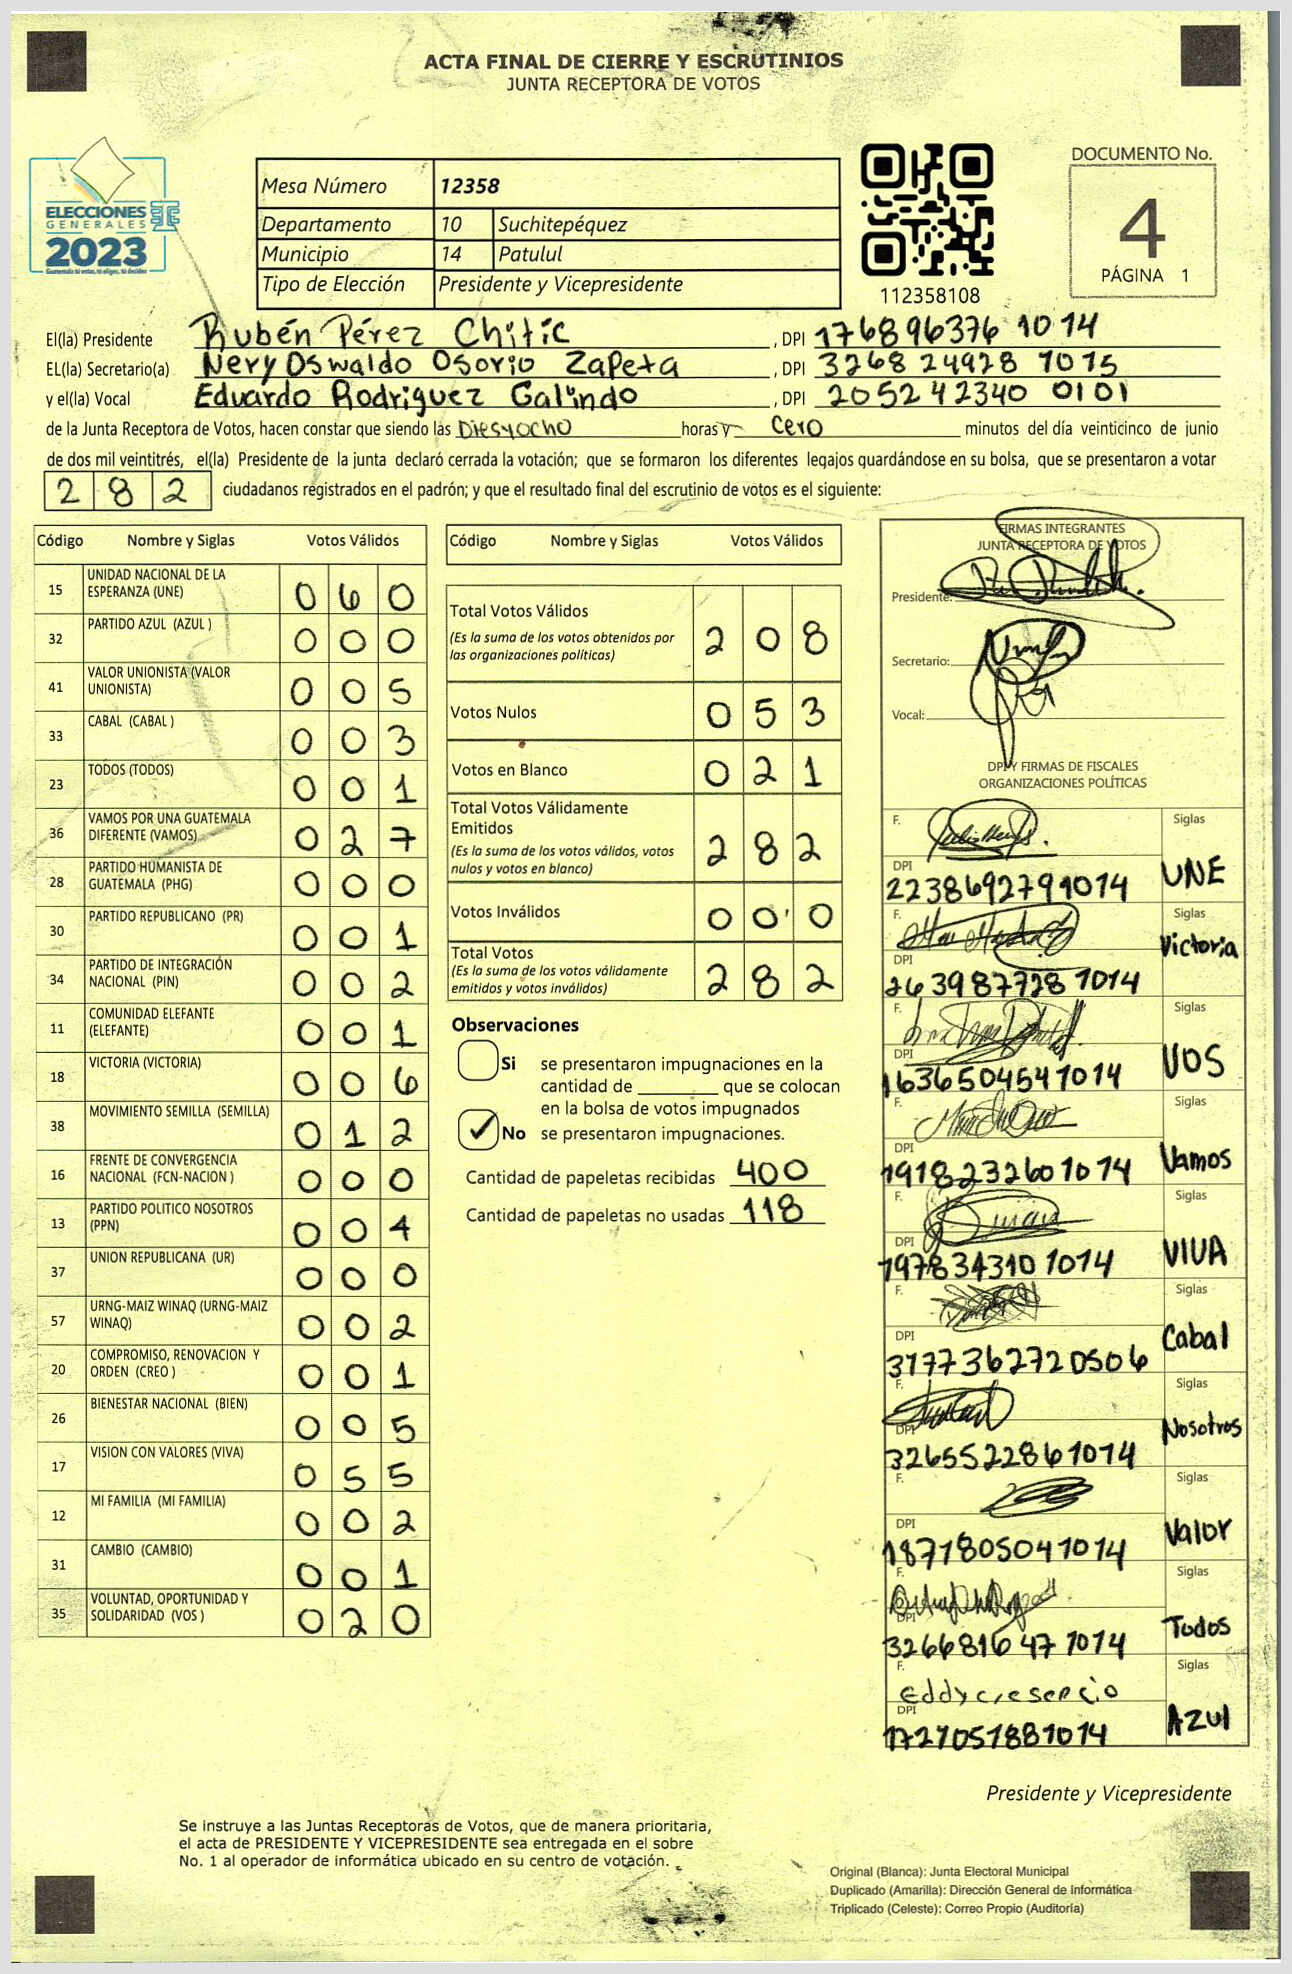 ACTA FINAL DE CIERRE Y ESCRUTINIOS
JUNTA RECEPTORA DE VOTOS
ELECCIONES
GENERALES
2023
Guatemala tú votas, tú eliges, tú decides
Mesa Número 12358
Departamento 10 Suchitepéquez
Municipio 14 Patulul
Tipo de Elección Presidente y Vicepresidente
112358108
DOCUMENTO No.
4
PÁGINA 1
El(la) Presidente Rubén Pérez Chitic , DPI 176896376 1014
EL(la) Secretario(a) Nery Oswaldo Osorio Zapeta , DPI 3268 24928 1015
y el(la) Vocal Eduardo Rodriguez Galindo , DPI 2052 42340 0101
de la Junta Receptora de Votos, hacen constar que siendo las Diesyocho horas y cero minutos del día veinticinco de junio
de dos mil veintitrés, el(la) Presidente de la junta declaró cerrada la votación; que se formaron los diferentes legajos guardándose en su bolsa, que se presentaron a votar
282 ciudadanos registrados en el padrón; y que el resultado final del escrutinio de votos es el siguiente:
Código Nombre y Siglas Votos Válidos
15 UNIDAD NACIONAL DE LA ESPERANZA (UNE) 060
32 PARTIDO AZUL (AZUL ) 000
41 VALOR UNIONISTA (VALOR UNIONISTA) 005
33 CABAL (CABAL ) 003
23 TODOS (TODOS) 001
36 VAMOS POR UNA GUATEMALA DIFERENTE (VAMOS) 027
28 PARTIDO HUMANISTA DE GUATEMALA (PHG) 000
30 PARTIDO REPUBLICANO (PR) 001
34 PARTIDO DE INTEGRACIÓN NACIONAL (PIN) 002
11 COMUNIDAD ELEFANTE (ELEFANTE) 001
18 VICTORIA (VICTORIA) 006
38 MOVIMIENTO SEMILLA (SEMILLA) 012
16 FRENTE DE CONVERGENCIA NACIONAL (FCN-NACION ) 000
13 PARTIDO POLITICO NOSOTROS (PPN) 004
37 UNION REPUBLICANA (UR) 000
57 URNG-MAIZ WINAQ (URNG-MAIZ WINAQ) 002
20 COMPROMISO, RENOVACION Y ORDEN (CREO ) 001
26 BIENESTAR NACIONAL (BIEN) 005
17 VISION CON VALORES (VIVA) 055
12 MI FAMILIA (MI FAMILIA) 002
31 CAMBIO (CAMBIO) 001
35 VOLUNTAD, OPORTUNIDAD Y SOLIDARIDAD (VOS ) 020
Código Nombre y Siglas Votos Válidos
Total Votos Válidos 208
(Es la suma de los votos obtenidos por
las organizaciones politicas)
Votos Nulos 053
Votos en Blanco 021
Total Votos Válidamente
Emitidos 282
(Es la suma de los votos válidos, votos
nulos y votos en blanco)
Votos Inválidos 000
Total Votos 282
(Es la suma de los votos válidamente
emitidos y votos inválidos)
Observaciones
Si se presentaron impugnaciones en la
cantidad de ________ que se colocan
en la bolsa de votos impugnados
✓ No se presentaron impugnaciones.
Cantidad de papeletas recibidas 400
Cantidad de papeletas no usadas 118
FIRMAS INTEGRANTES
JUNTA RECEPTORA DE VOTOS
Presidente:
Secretario:
Vocal:
DPI Y FIRMAS DE FISCALES
ORGANIZACIONES POLÍTICAS
F. Siglas
DPI 2238692791014 UNE
F. Siglas
DPI 263987728 1014 Victoria
F. Siglas
DPI 1636504541014 VOS
F. Siglas
DPI 1918232601014 Vamos
F. Siglas
DPI 197834310 1014 VIVA
F. Siglas
DPI 3177362720506 Cabal
F. Siglas
DPI 3265522861014 Nosotros
F. Siglas
DPI 1871805041014 Valor
F. Siglas
DPI 326681647 1014 Todos
F. Eddy cresencio Siglas
DPI 1721051881014 Azul
Presidente y Vicepresidente
Se instruye a las Juntas Receptoras de Votos, que de manera prioritaria,
el acta de PRESIDENTE Y VICEPRESIDENTE sea entregada en el sobre
No. 1 al operador de informática ubicado en su centro de votación.
Original (Blanca): Junta Electoral Municipal
Duplicado (Amarilla): Dirección General de Informática
Triplicado (Celeste): Correo Propio (Auditoría)